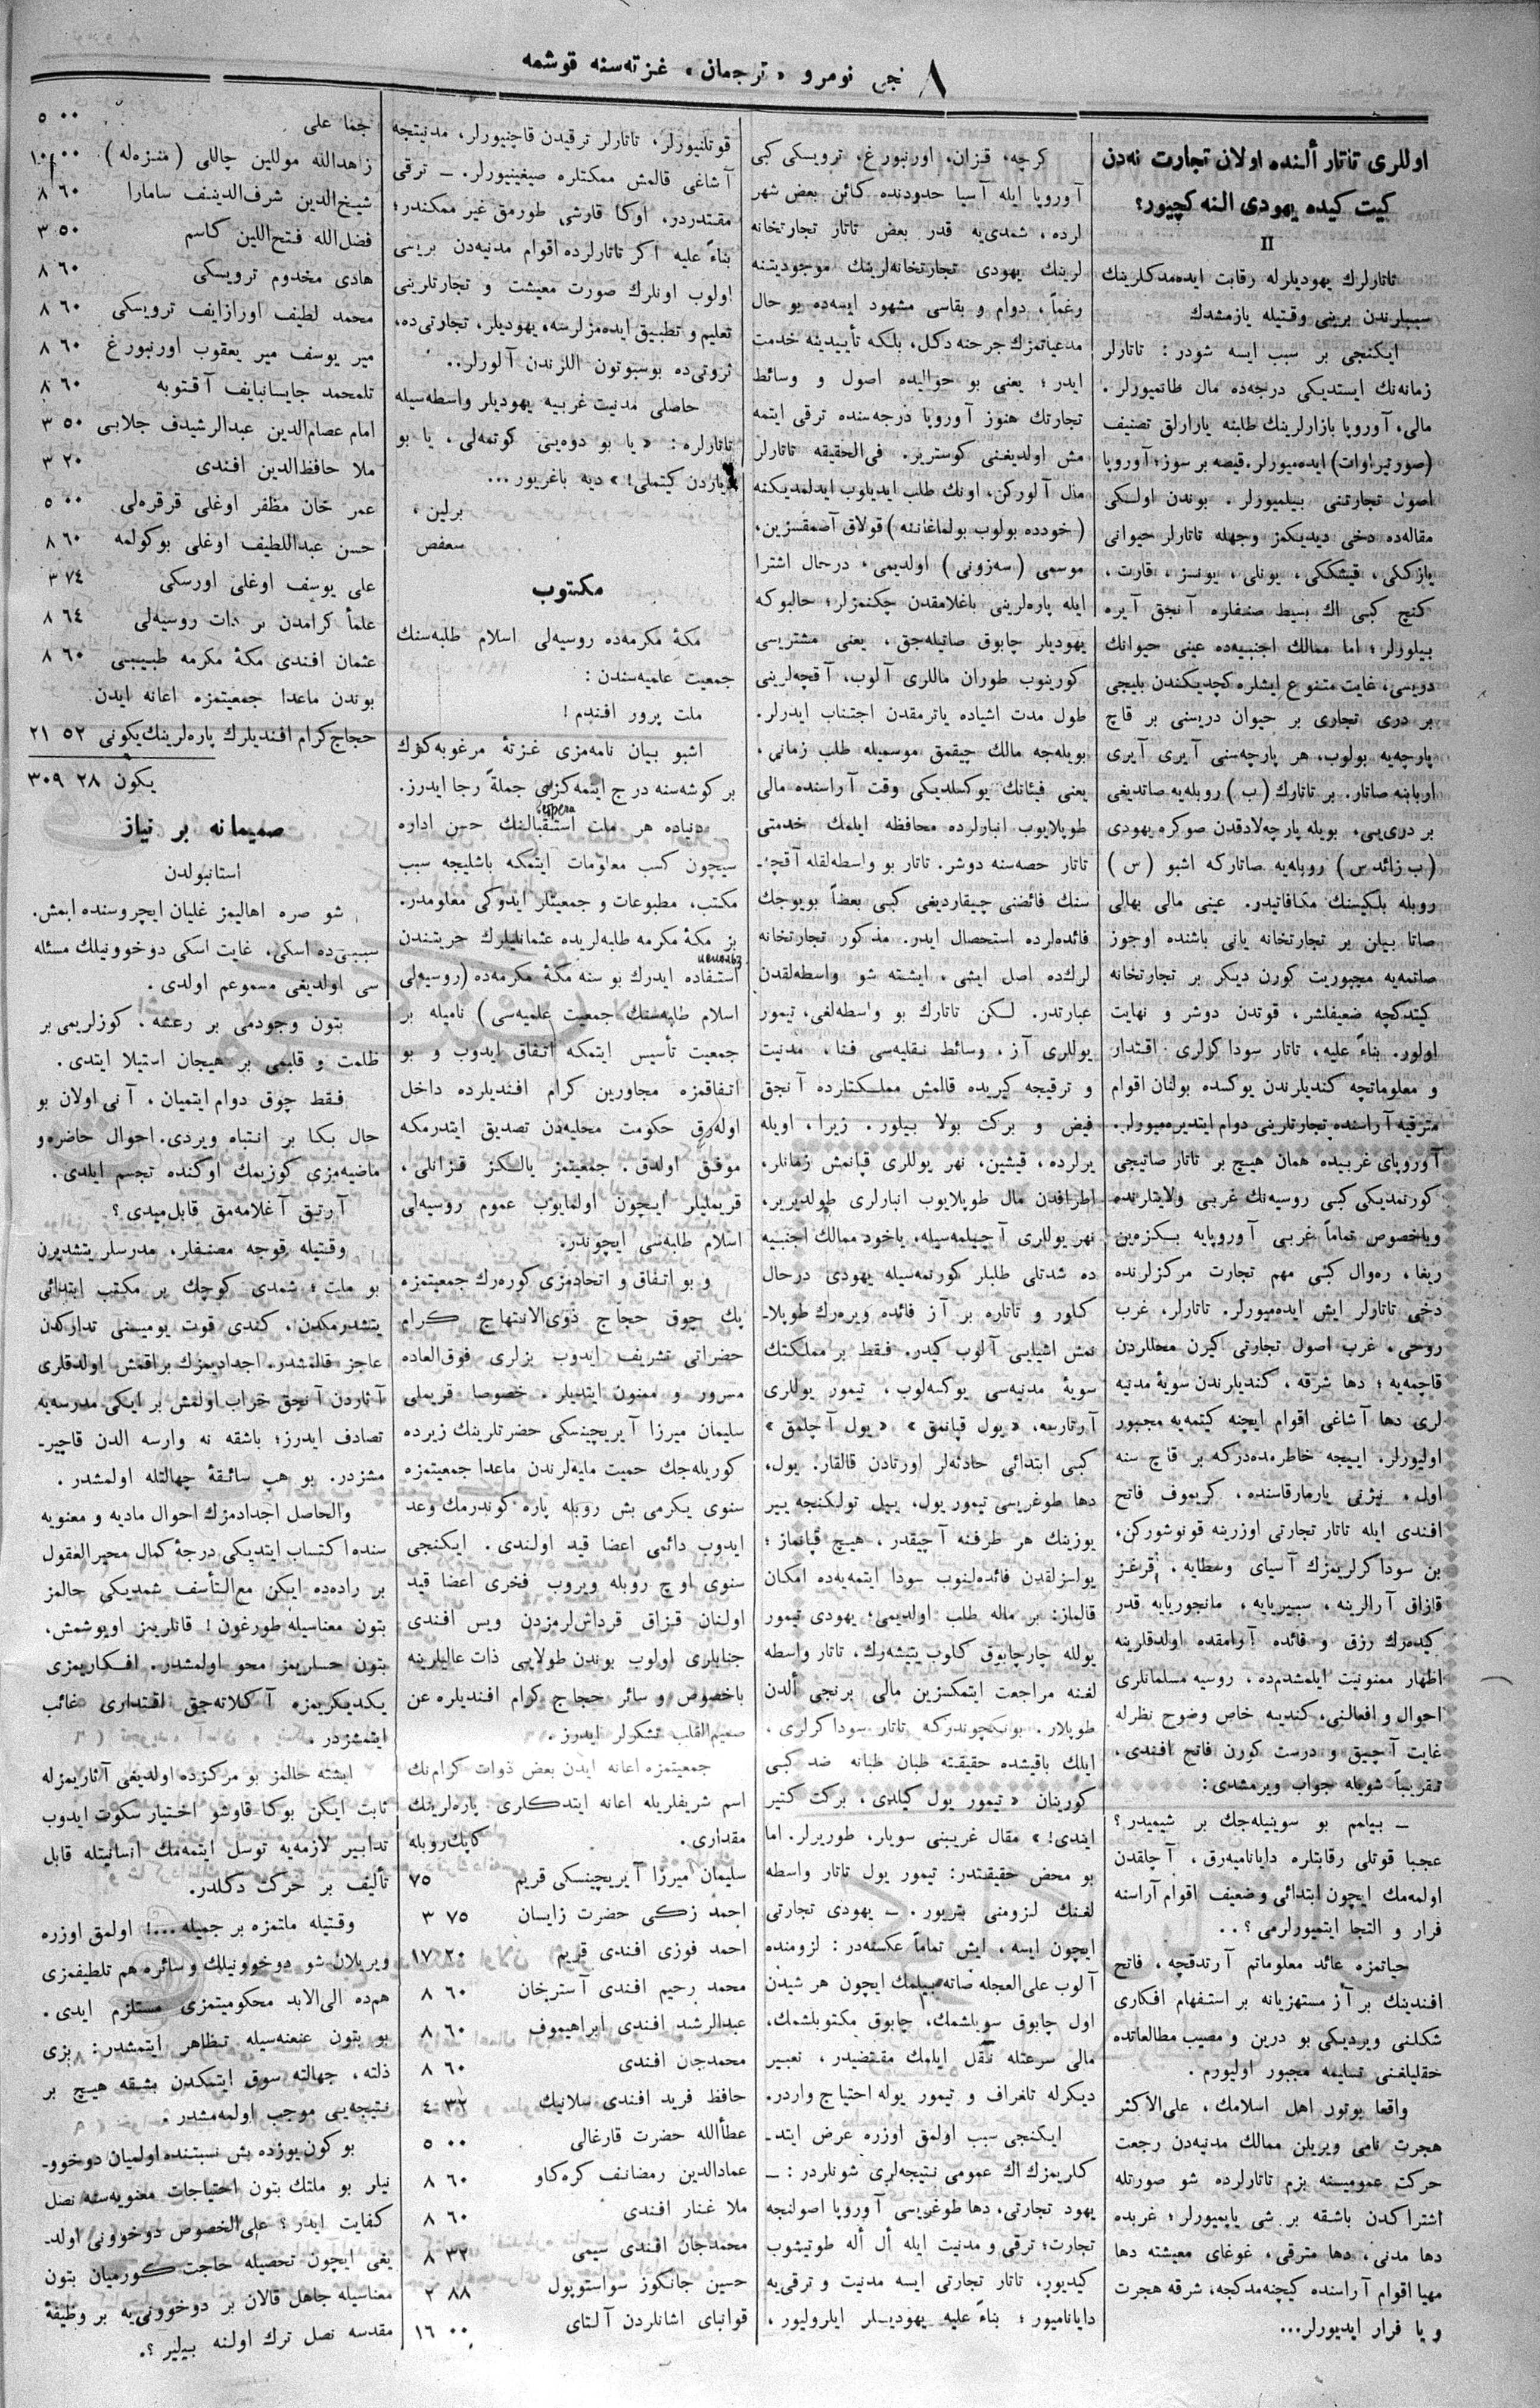 ٨ نجی نومرو «ترجمان» غزته‌سنه قوشمه
اوللری تاتار ألنده اولان تجارت نه‌دن
كیت كیده یهودی النه كچیور؟
II
تاتارلرك یهودیلرله رقابت ایده‌مدكلرینك
سببلرندن برینی وقتیله یازمشدك
ایكنجی بر سبب ایسه شودر: تاتارلر
زمانه‌نك ایستدیكی درجه‌ده مال طانمیورلر.
مالی، آوروپا بازارلرینك طلبنه یارارلق تصنیف
(صورتیراوات) ایده‌میورلر. قیصه بر سوز؛ آوروپا
اصول تجارتنی بیلمیورلر. بوندن اولكی
مقاله‌ده دخی دیدیكمز وجهله تاتارلر حیوانی
یازكلی، قیشككی، یونلی، یونسز، قارت،
كنچ كبی اك بسیط صنفلره آنجق آیره
بیلورلر؛ اما ممالك اجنبیه‌ده عینی حیوانك
دریسی، غایت متنوع ایشلره كچدیكندن بلیجی
بر دری تجاری بر حیوان دریسنی بر قاچ
پارچه‌یه بولوب، هر پارچه‌سنی آیری آیری
اربابنه صاتار. بر تاتارك (ب) روبله‌یه صاتدیغی
بر دری‌یی، بویله پارچه‌لادقدن صوكره یهودی
(ب زائد س) روبله‌یه صاتاركه اشبو (س)
روبله بلكیسنك مكافاتیدر. عینی مالی بهالی
صاتا بیلن بر تجارتخانه یانی باشنده اوجوز
صاتمه‌یه مجبوریت كورن دیكر بر تجارتخانه
كیتدكچه ضعیفلشر، قوتدن دوشر و نهایت
اولور. بناءً علیه، تاتار سوداكرلری اقتدار
و معلوماتچه كندیلرندن یوكسده بولنان اقوام
مترقیه آراسنده تجارتلرینی دوام ایتدیره‌میورلر.
آوروپای غربیده همان هیچ بر تاتار صاتیجی
كورنمدیكی كبی روسیه‌نك غربی ولایتلرنده
وباخصوص تماماً غربی آوروپایه بكزه‌ین
ریغا، ره‌وال كبی مهم تجارت مركزلرنده
دخی تاتارلر ایش ایده‌میورلر. تاتارلر، غرب
روحی، غرب اصول تجارتی كیرن محللردن
قاچمه‌یه؛ دها شرقه، كندیلرندن سویهٔ مدنیه
لری دها آشاغی اقوام ایچنه كیتمه‌یه مجبور
اولیورلر. اییجه خاطرمده‌دركه بر قاچ سنه
اول، نیژنی یارمارقاسنده، كریموف فاتح
افندی ایله تاتار تجارتی اوزرینه قونوشوركن،
بن سوداكرلریمزك آسیای وسطایه، قرغز
قازاق آرالرینه، سیبریایه، مانجوریایه قدر
كیده‌رك رزق و فائده آرامقده اولدقلرینه
اظهار ممنونیت ایلمشدم‌ده، روسیه مسلمانلری
احوال و افعالنی، كندینه خاص وضوح نظرله
غایت آچیق و درست كورن فاتح افندی،
تقریباً شویله جواب ویرمشدی:
ــ بیلمم بو سوینیله‌جك بر شیمیدر؟
عجبا قوتلی رقابتلره دایانامیه‌رق، آچلقدن
اولمه‌مك ایچون ابتدائی و ضعیف اقوام آراسنه
فرار و التجا ایتمیورلرمی؟..
حیاتمزه عائد معلوماتم آرتدقچه، فاتح
افندینك بر آز مستهزیانه بر استفهام افكاری
شكلنی ویردیكی بو درین و مصیب مطالعاتده
حقلیلغنی تسلیمه مجبور اولیورم.
واقعا بوتون اهل اسلامك، علی‌الاكثر
هجرت نامی ویریلن ممالك مدنیه‌دن رجعت
حركت عمومیسنه بزم تاتارلرده شو صورتله
اشتراكدن باشقه بر شی یاپمیورلر؛ غربده
دها مدنی، دها مترقی، غوغای معیشته دها
مهیا اقوام آراسنده كیچنه‌مدكجه، شرقه هجرت
و یا فرار ایدیورلر...
كرچه، قزان، اورنبورغ، ترویسكی كبی
آوروپا ایله آسیا حدودنده كائن بعض شهر
لرده، شمدی‌یه قدر بعض تاتار تجارتخانه
لرینك یهودی تجارتخانه‌لرینك موجودیتنه
رغماً، دوام و بقاسی مشهود ایسه‌ده بو حال
مدعیاتمزك جرحنه دكل، بلكه تأییدینه خدمت
ایدر؛ یعنی بو حوالیده اصول و وسائط
تجارتك هنوز آوروپا درجه‌سنده ترقی ایتمه
مش اولدیغنی كوستریر. فی‌الحقیقه تاتارلر
مال آلوركن، اونك طلب ایدیلوب ایدلمدیكنه
(خودده بولوب بولماغاننه) قولاق آصمقسزین،
موسمی (سه‌زونی) اولدیمی، درحال اشترا
ایله پاره‌لرینی باغلامقدن چكنمزلر؛ حالبوكه
یهودیلر چابوق صاتیله‌جق، یعنی مشتریسی
كورینوب طوران ماللری آلوب، آقچه‌لرینی
طول مدت اشیاده یاترمقدن اجتناب ایدرلر.
بویله‌جه مالك چیقمق موسمیله طلب زمانی،
یعنی فیئاتك یوكسلدیكی وقت آراسنده مالی
طوپلایوب انبارلرده محافظه ایلمك خدمتی
تاتار حصه‌سنه دوشر. تاتار بو واسطه‌لقله آقچه‌ـ
سنك فائضنی چیقاردیغی كبی بعضاً بویوجك
فائده‌لرده استحصال ایدر. مذكور تجارتخانه
لرك‌ده اصل ایشی، ایشته شو واسطه‌لقدن
عبارتدر. لكن تاتارك بو واسطه‌لغی، تیمور
یوللری آز، وسائط نقلیه‌سی فنا، مدنیت
و ترقیجه كیریده قالمش مملكتلرده آنجق
فیض و بركت بولا بیلور. زیرا، اویله
یرلرده، قیشین، نهر یوللری قپانمش زمانلر،
اطرافدن مال طوپلایوب انبارلری طولدیریر،
نهر یوللری آچیلمه‌سیله، یاخود ممالك اجنبیه
ده شدتلی طلبلر كورنمه‌سیله یهودی درحال
كلور و تاتاره بر آز فائده ویره‌رك طوپلاـ
نمش اشیایی آلوب كیدر. فقط بر مملكتك
سویهٔ مدنیه‌سی یوكسه‌لوب، تیمور یوللری
آرتارسه، «یول قپانمق» «یول آچلمق»
كبی ابتدائی حادثه‌لر اورتادن قالقار. یول،
دها طوغریسی تیمور یول، ییل تولكنجه ییر
یوزینك هر طرفنه آچیقدر، هیچ قپانماز؛
یولسزلقدن فائده‌لنوب سودا ایتمه‌یه‌ده امكان
قالماز: بر ماله طلب اولدیمی؛ یهودی تیمور
یولله چارچابوق كلوب یتیشه‌رك، تاتار واسطه
لغنه مراجعت ایتمكسزین مالی برنجی ألدن
طوپلار. بونیكچوندركه تاتار سوداكرلری،
ایلك باقیشده حقیقته طبان طبانه ضد كبی
كورینان «تیمور یول كیلدی، بركت كتیر
ایندی!» مقال غریبنی سویلر، طوریرلر. اما
بو محض حقیقتدر: تیمور یول تاتار واسطه
لغنك لزومنی بتریور. ــ یهودی تجارتی
ایچون ایسه، ایش تماماً عكسنه‌در: لزومنده
آلوب علی‌العجله صاته بیلمك ایچون هر شیدن
اول چابوق سویلشمك، چابوق مكتوبلشمك،
مالی سرعتله نقل ایلمك مقتضیدر، تعبیر
دیكرله تلغراف و تیمور یوله احتیاج واردر.
ایكنجی سبب اولمق اوزره عرض ایتدـ
كلریمزك اك عمومی نتیجه‌لری شونلردر: ــ
یهود تجارتی، دها طوغریسی آوروپا اصولنجه
تجارت؛ ترقی و مدنیت ایله أل أله طوتیشوب
كیدیور، تاتار تجارتی ایسه مدنیت و ترقی‌یه
دایانامیور؛ بناءً علیه یهودیلر ایلرولیور،
قوتلنیورلر، تاتارلر ترقیدن قاچنیورلر، مدنیتجه
آشاغی قالمش ممكتلره صیغینیورلر. ــ ترقی
مقتدردر، اوكا قارشی طورمق غیر ممكندر؛
بناءً علیه اكر تاتارلرده اقوام مدنیه‌دن بریسی
اولوب اونلرك صورت معیشت و تجارتلرینی
تعلیم و تطبیق ایده‌مزلرسه، یهودیلر، تجارتی‌ده،
ثروتی‌ده بوسبوتون اللرندن آلورلر..
حاصلی مدنیت غربیه یهودیلر واسطه‌سیله
تاتارلره: «یا بو دوه‌یی كوتمه‌لی، یا بو
دیاردن كیتملی!» دیه باغریور...
برلین،
سعفص
مكتوب
مكهٔ مكرمه‌ده روسیه‌لی اسلام طلبه‌سنك
جمعیت علمیه‌سندن:
ملت پرور افندم!
اشبو بیان نامه‌مزی غزتهٔ مرغوبه‌كزك
بر كوشه‌سنه درج ایتمه‌كزی جملةً رجا ایدرز.
دنیاده هر ملت استقبالنك حسن اداره
سیچون كسب معلومات ایتمكه باشلیجه سبب
مكتب، مطبوعات و جمعیتلر ایدوكی معلومدر.
بز مكهٔ مكرمه طلبه‌لریده عثمانلیلرك حریتندن
استفاده ایدرك بو سنه مكهٔ مكرمه‌ده (روسیه‌لی
اسلام طلبه‌سنك جمعیت علمیه‌سی) نامیله بر
جمعیت تأسیس ایتمكه اتفاق ایدوب و بو
اتفاقمزه مجاورین كرام افندیلرده داخل
اوله‌رق حكومت محلیه‌دن تصدیق ایتدرمكه
موفق اولدق. جمعیتمز یالكز قزانلی،
قریملیلر ایچون اولمایوب عموم روسیه‌لی
اسلام طلبه‌سی ایچوندر.
و بو اتفاق و اتحادمزی كوره‌رك جمعیتمزه
پك چوق حجاج ذوی‌الابتهاج كرام
حضراتی تشریف ایدوب بزلری فوق‌العاده
مسرور و ممنون ایتدیلر. خصوصا قریملی
سلیمان میرزا آیریچینسكی حضرتلرینك زیرده
كوریله‌جك حمیت مایه‌لرندن ماعدا جمعیتمزه
سنوی یكرمی بش روبله پاره كوندرمك وعد
ایدوب دائمی اعضا قید اولندی. ایكنجی
سنوی اوچ روبله ویروب فخری اعضا قید
اولنان قزاق قرداش‌لرمزدن ویس افندی
جنابلری اولوب بوندن طولایی ذات عالیلرینه
باخصوص و سائر حجاج كرام افندیلره عن
صمیم‌القلب تشكرلر ایدرز.
جمعیتمزه اعانه ایدن بعض ذوات كرام‌نك
اسم شریفلریله اعانه ایتدكلری پاره‌لرینك
مقداری. كاپك روبله
سلیمان میرزا آیریچینسكی قریم ٧٥
احمد زكی حضرت زایسان ٧٥ ٣
احمد فوزی افندی قریم ٢٠ ١٧
محمد رحیم افندی آسترخان ٦٠ ٨
عبدالرشد افندی ابراهیموف ٦٠ ٨
محمدجان افندی ٦٠ ٨
حافظ فرید افندی سلانیك ٣٢ ٤
عطأالله حضرت قارغالی ٠٠ ٥
عمادالدین رمضانف كره‌كاو ٦٠ ٨
ملا غنار افندی ٦٠ ٨
محمدجان افندی سیمی ٣٢ ٨
حسین جانكوز سواستوپول ٨٨ ٢
قوانبای اشانلردن آلتای ٠٠ ١٦
جفا علی ٠٠ ٥
زاهدالله موللین چاللی (منزه‌له) ٠٠ ١٠
شیخ‌الدین شرف‌الدینف سامارا ٦٠ ٨
فضل‌الله فتح‌اللین كاسم ٥٠ ٣
هادی مخدوم ترویسكی ٦٠ ٨
محمد لطیف اورازایف ترویسكی ٦٠ ٨
میر یوسف میر یعقوب اورنبورغ ٦٠ ٨
تلمحمد جایسانبایف آقتوبه ٦٠ ٨
امام عصام‌الدین عبدالرشیدف جلابی ٥٠ ٣
ملا حافظ‌الدین افندی ٢٠ ٣
عمر خان مظفر اوغلی قرقره‌لی ٠٠ ٥
حسن عبداللطیف اوغلی بوكولمه ٦٠ ٨
علی یوسف اوغلی اورسكی ٧٤ ٣
علمأ كرامدن بر ذات روسیه‌لی ٦٤ ٨
عثمان افندی مكهٔ مكرمه طبیبی ٦٠ ٨
بوندن ماعدا جمعیتمزه اعانه ایدن
حجاج كرام افندیلرك پاره‌لرینك یكونی ٥٢ ٢١
یكون ٢٨ ٣٠٩
صمیمانه بر نیاز
استانبولدن
شو صره اهالیمز غلیان ایچروسنده ایمش.
سببی‌ده اسكی، غایت اسكی دوخوونیلك مسئله
سی اولدیغی مسموعم اولدی.
بتون وجودمی بر رعشه، كوزلریمی بر
ظلمت و قلبمی بر هیجان استیلا ایتدی.
فقط چوق دوام ایتمیان، آنی اولان بو
حال بكا بر انتباه ویردی. احوال حاضره و
ماضیه‌مزی كوزیمك اوكنده تجسم ایلدی.
آرتیق آغلامه‌مق قابل‌میدی؟
وقتیله قوجه مصنفلر، مدرسلر یتشدیرن
بو ملت؛ شمدی كوچك بر مكتب ابتدائی
یتشدرمكدن، كندی قوت یومیسنی تداركدن
عاجز قالمشدر. اجدادیمزك براقمش اولدقلری
آثاردن آنجق خراب اولمش بر ایكی مدرسه‌یه
تصادف ایدرز؛ باشقه نه وارسه الدن قاچیرـ
مشزدر. بو هپ سائقهٔ جهالتله اولمشدر.
والحاصل اجدادمزك احوال مادیه و معنویه
سنده اكتساب ایتدیكی درجهٔ كمال محیرالعقول
بر راده‌ده ایكن مع‌التأسف شمدیكی حالمز
بتون معناسیله طورغون! قانلریمز اویوشمش،
بتون حسلریمز محو اولمشدر. افكاریمزی
یكدیكریمزه آكلاته‌جق اقتداری غائب
ایتمشزدر.
ایشته حالمز بو مركزده اولدیغی آثاریمزله
ثابت ایكن بوكا قاوشو اختیار سكوت ایدوب
تدابیر لازمه‌یه توسل ایتمه‌مك انسانیتله قابل
تألیف بر حركت دكلدر.
وقتیله ملتمزه بر جمیله...! اولمق اوزره
ویریلان شو دوخوونیلك و سائره هم تلطیفمزی
هم‌ده الی‌الابد محكومیتمزی مستلزم ایدی.
بو بتون عنعنه‌سیله تظاهر ایتمشدر: بزی
ذلته، جهالته سوق ایتمكدن بشقه هیچ بر
نتیجه‌یی موجب اولمه‌مشدر.
بو كون یوزده بش نسبتنده اولمیان دوخووـ
نیلر بو ملتك بتون احتیاجات معنویه‌سنه نصل
كفایت ایدر؟ علی‌الخصوص دوخوونی اولدـ
یغی ایچون تحصیله حاجت كورمیان بتون
معناسیله جاهل قالان بر دوخوونی‌یه بر وظیفهٔ
مقدسه نصل ترك اولنه بیلیر؟.